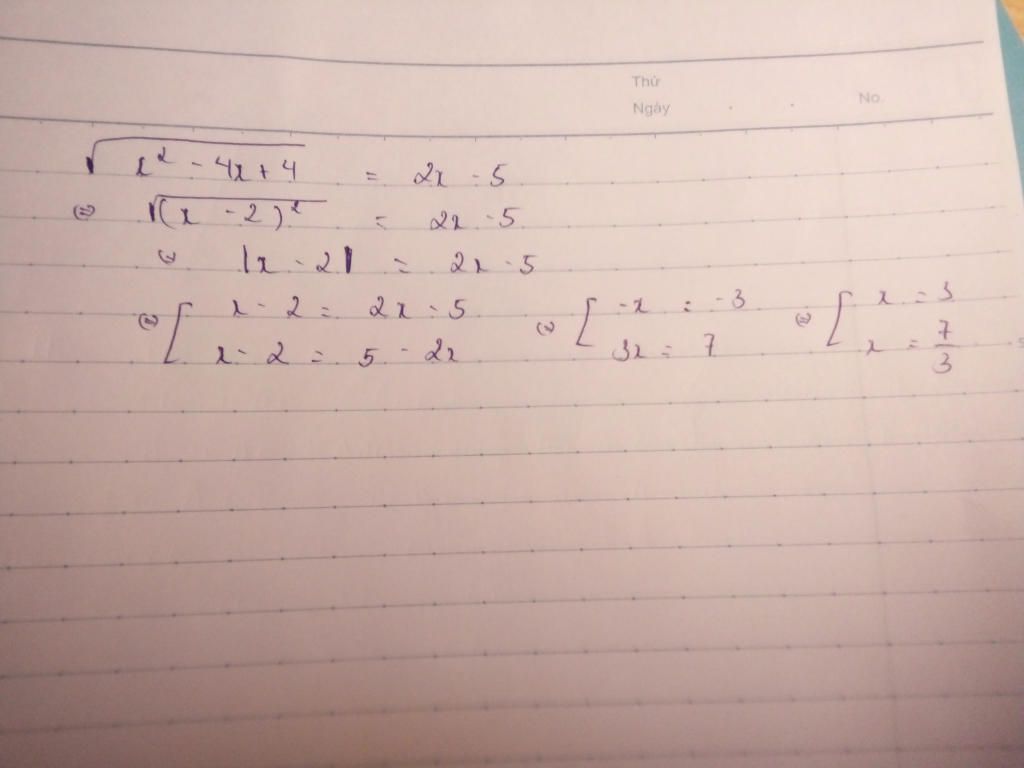 Thứ
Ngày . . No.
√(x² - 4x + 4) = 2x - 5
⇔ √((x - 2)²) = 2x - 5
⇔ |x - 2| = 2x - 5
⇔ [ x - 2 = 2x - 5 ⇔ [ -x = -3 ⇔ [ x = 3
x - 2 = 5 - 2x 3x = 7 x = 7/3